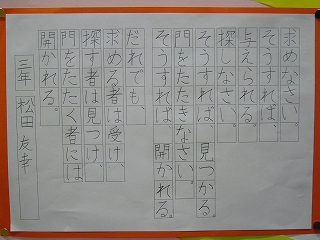 求めなさい。
そうすれば、
与えられる。
探しなさい。
そうすれば、見つかる。
門をたたきなさい。
そうすれば、開かれる。
だれでも、
求める者は受け、
探す者は見つけ、
門をたたく者には
開かれる。
三年 松田友幸